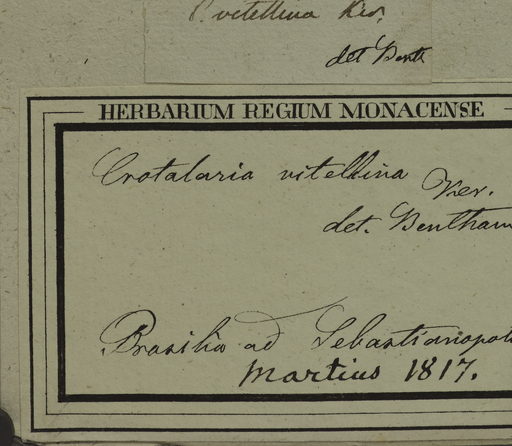 C. vitellina Ker.
det Benth
HERBARIUM REGIUM MONACENSE
Crotalaria vitellina Ker.
det. Bentham
Brasilia ad Sebastianopol
Martius 1817.